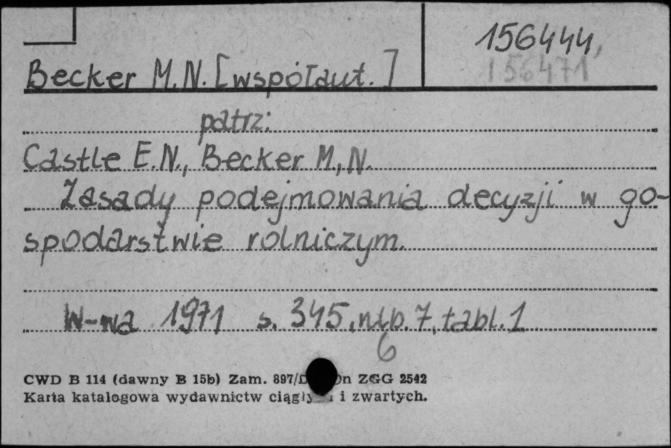 156444,
156471
Becker M.N. [współaut.]
patrz:
Castle E.N., Becker M,N.
Zasady podejmowania decyzji w go-
spodarstwie rolniczym.
W-wa 1971 s. 345, nlb. 7, tabl. 1
6
CWD B 114 (dawny B 15b) Zam. 897/ ZGG 2542
Karta katalogowa wydawnictw i zwartych.